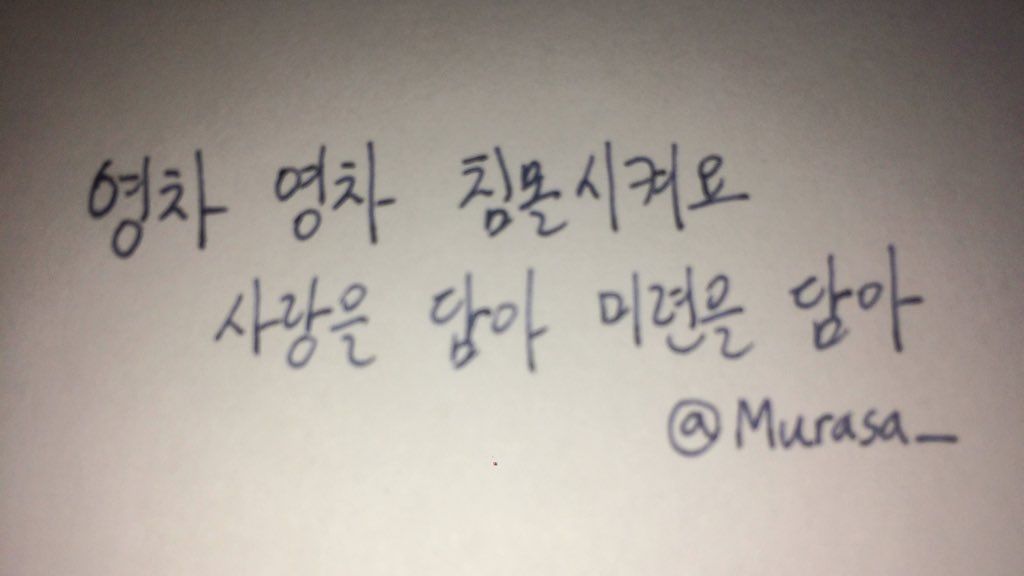 영차 영차 침몰시켜요
사랑을 담아 미련을 담아
@Murasa_